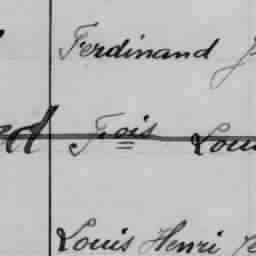 Ferdinand J
Fois Lou
Louis Henri